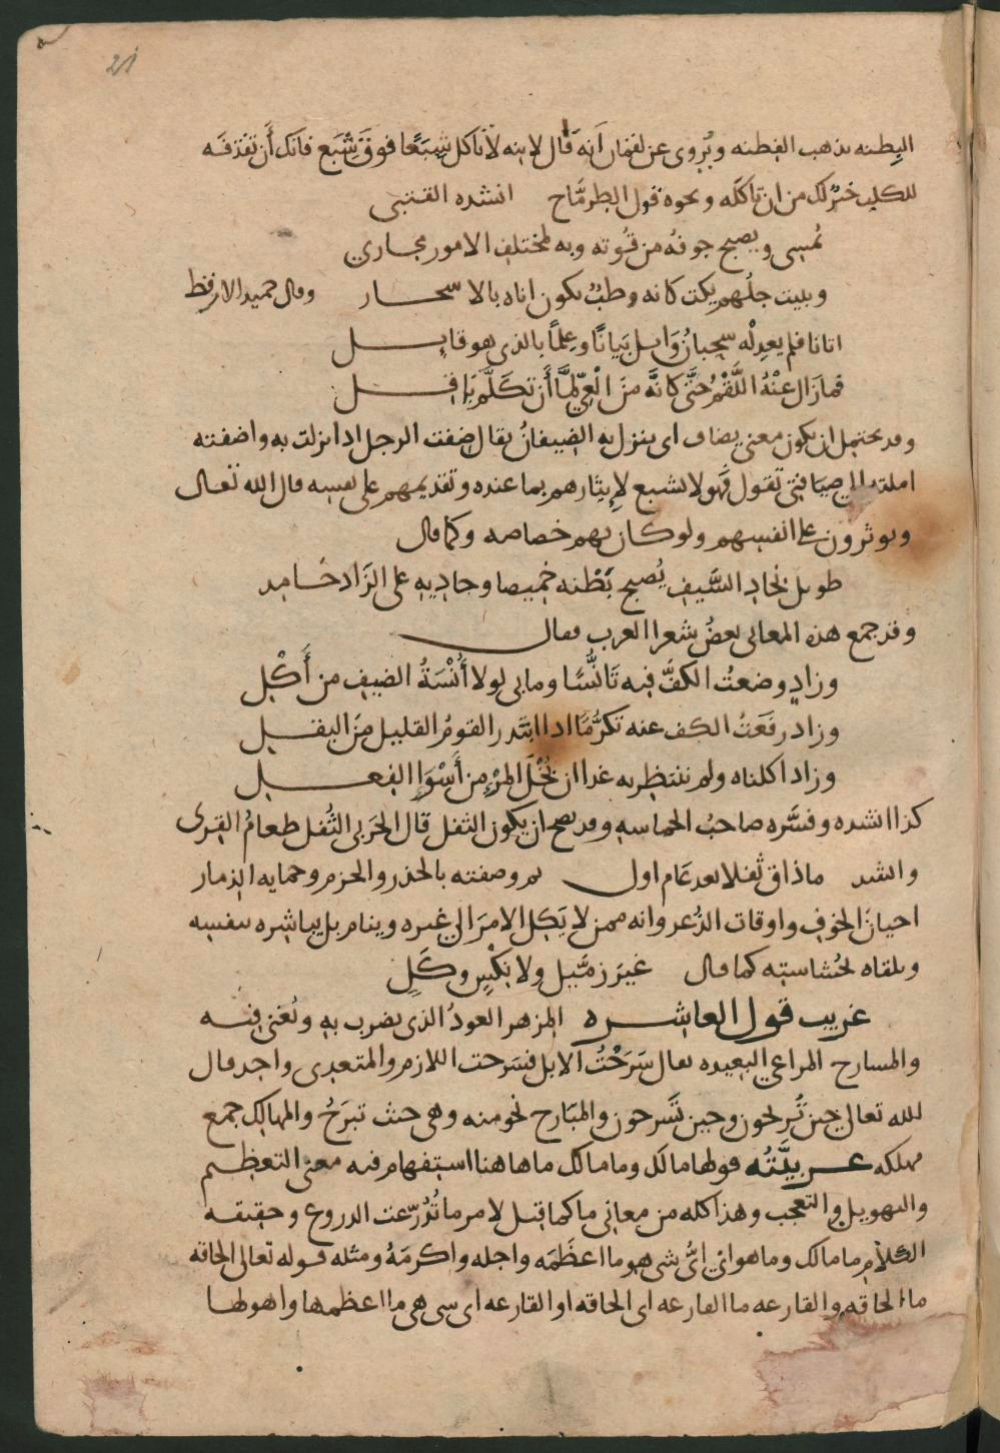 21
البطنه تذهب الفطنه ويُروى عن لقمان انه قال لابنه لا تاكل شِبَعًا فوق شِبَع فانك أن تقذفه
للكلب خيرٌ لك من ان تاكله ونحوه قول الطرمّاح انشده القتبى
نُمسى ويصبح جوفه من قُوته وبه لمختلف الامور مجارى
ويبيت جلهم يكت كانه وطبٌ يكون اناه بالاسحار وقال حميد الارقط
اتانا فلم يعدِلْه سحبانُ وَايل بَيانًا وعِلمًا بالذى هو قايل
فمازال عنْهُ اللَّقْمُ حتَّى كانَّه منَ الْعِىّ لمَّا أَن تكلَّم بَاقل
وقد يحتمل ان يكون معنى يضاف اى ينزل به الضيفانُ يقال ضفت الرجل اذا نزلت به واضفته
املته الى ضيافتى تقول فهو لا يشبع لإيثارهم بما عنده وتقديمهم على نفسه قال الله تعالى
ويوثرون على انفسهم ولو كان بهم خصاصه وكما قال
طويل نجاد السَّيف يُصبح بَطْنه خميصا وحاديه على الزَّاد حامد
وقد جمع هذه المعانى بعضُ شعرا العرب فقال
وزادٍ وضعتُ الكفَّ فيه تَانُّسًا وما بى لولا أُنْسَةُ الضيف من أَكْل
وزاد رفَعَتُ الكف عنه تكرُّمًا اذا ابتدر القومُ القليل منَ البقل
وزاد اكلناه ولم ننتظر به غدا ان بُخْلَ المرْءِ من أَسْوَإ الفعل
كذا انشده وفسَّره صاحبُ الحماسه وقد يصح ان يكون الثفل قال الحَربى الثُفل طعامُ القِرى
وانشد ماذاق ثُفلا بعد عَام اول ثم وصفته بالحذر والحزم وحمايه الذمار
احيانَ الخوف واوقات الذُعر وانه ممن لا يَكِل الامرَ الى غيره وينام بل يباشره بنفسه
ويلقاه لحُشاسته كما قال غيرَ زمَّيل ولا نِكْسٍ وكَلِ
غريب قول العاشره المزهر العودُ الذى يضرب به ويُغنى فيه
والمسارح المراعى البعيده يقال سَرَحْتُ الابل فسَرحت اللازم والمتعدى واحد قال
الله تعالى حين تُريحون وحين تَسرحون والمبَارح نحو منه وهى حيث تبرَحُ والمهالك جمع
مهلكه عربيَّتُه قولها مالك وما مالك ما هاهنا استفهام فيه معنى التعظيم
والتهويل والتعجب وهذا كله من معانى ما كما قيل لامر ما تُدُرّعت الدروع وحقيقه
الكلام ما مالك وما هو اى اىُّ شى هو ما اعظَمَه واجله واكرمَهُ ومثله قوله تعالى الحاقه
ما الحاقه والقارعه ما القارعه اى الحاقه او القارعه اى شى هى ما اعظمها واهولها